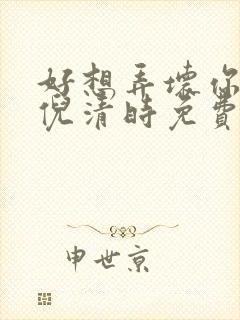 好想弄壞你
倪清時免費
申世京